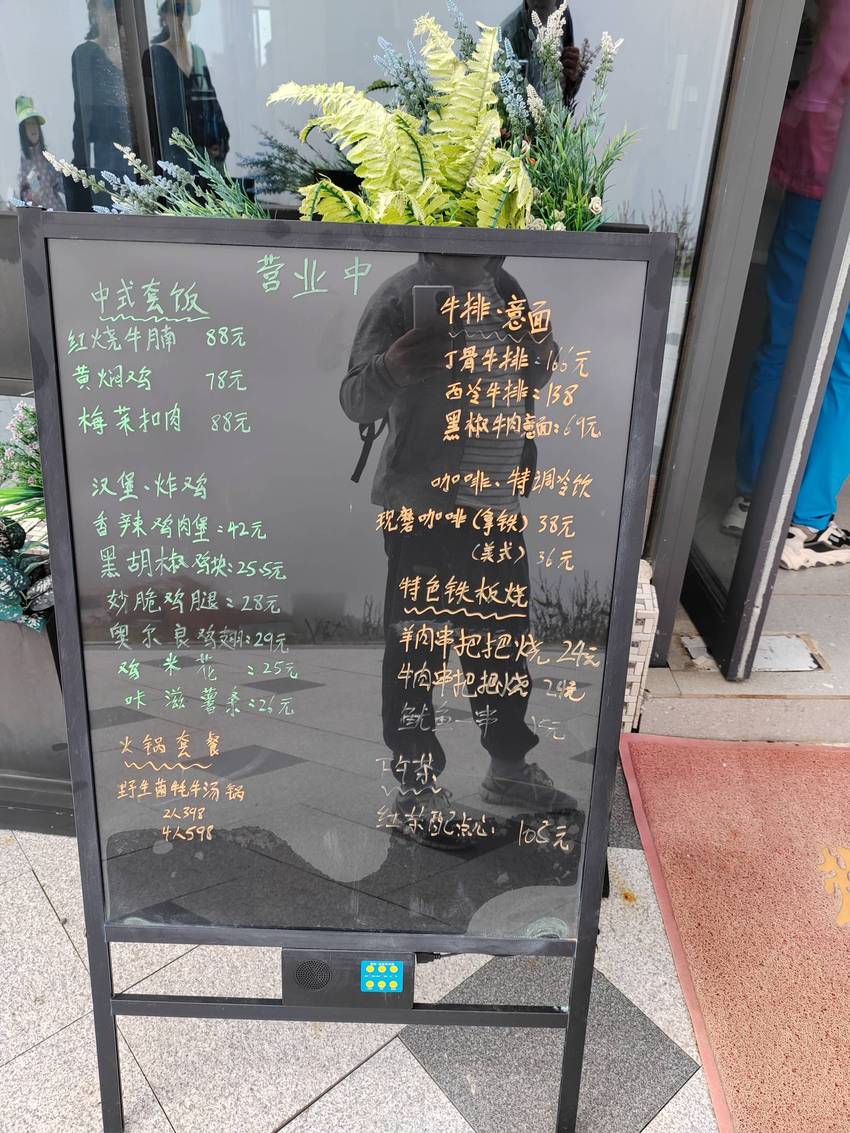 营业中
中式套饭
红烧牛腩 88元
黄焖鸡 78元
梅菜扣肉 88元
汉堡、炸鸡
香辣鸡肉堡:42元
黑胡椒鸡块:25.5元
妙脆鸡腿:28元
奥尔良鸡翅:29元
鸡米花:25元
咔滋薯条:26元
火锅套餐
野生菌牦牛汤锅
2人398
4人598
牛排·意面
丁骨牛排:166元
西冷牛排:138
黑椒牛肉意面:69元
咖啡、特调冷饮
现磨咖啡(拿铁)38元
(美式)36元
特色铁板烧
羊肉串把把烧 24元
牛肉串把把烧 24元
鱿鱼一串 15元
下午茶
红茶配点心: 105元